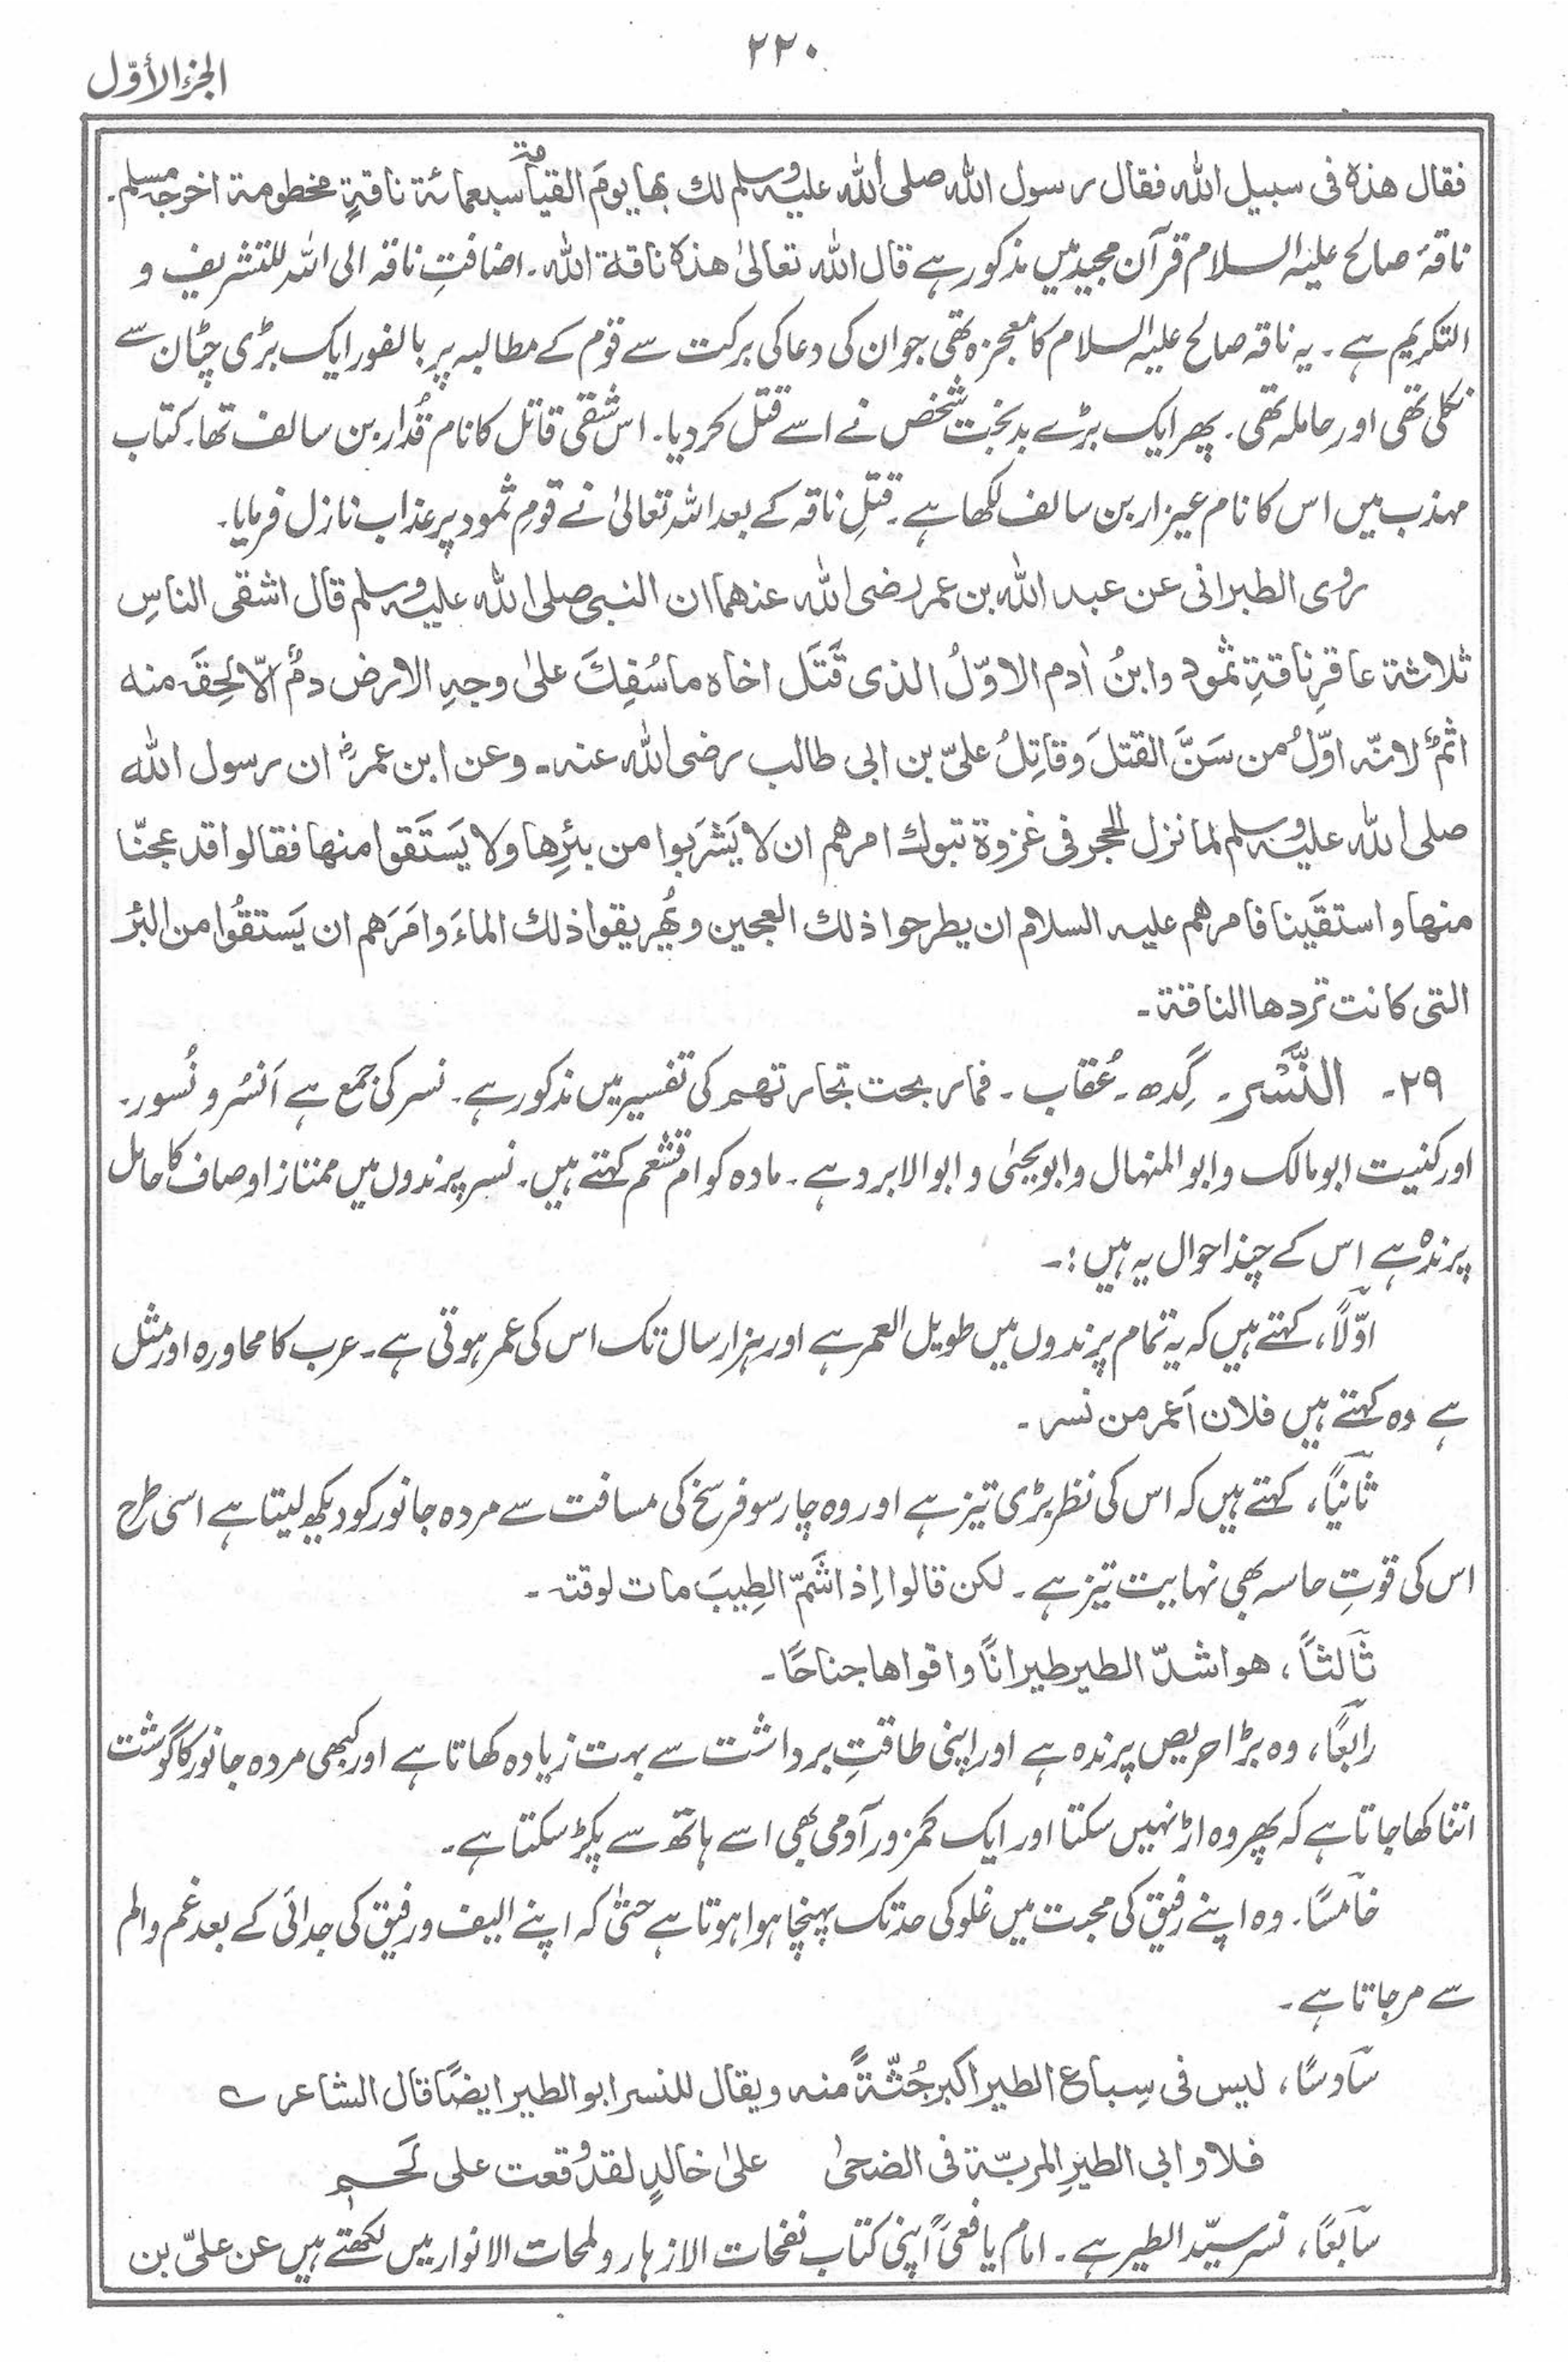 ۲۲۰
الجزء الأوّل
فقال هذه فى سبيل الله فقال رسول الله صلى الله عليه وسلم لك بها يومَ القيامة سبعمائة ناقةٍ مخطومة اخرجه مسلم۔
ناقۂ صالح علیہ السلام قرآن مجید میں مذکور ہے قال الله تعالىٰ هذه ناقة الله۔ اضافتِ ناقہ الی اللہ للتشریف و
التکریم ہے۔ یہ ناقہ صالح علیہ السلام کا معجزہ تھی جو ان کی دعا کی برکت سے قوم کے مطالبہ پر بالفور ایک بڑی چٹان سے
نکلی تھی اور حاملہ تھی۔ پھر ایک بڑے بدبخت شخص نے اسے قتل کر دیا۔ اس شقی قاتل کا نام قُدار بن سالف تھا۔ کتاب
مہذب میں اس کا نام عیزار بن سالف لکھا ہے۔ قتلِ ناقہ کے بعد اللہ تعالیٰ نے قومِ ثمود پر عذاب نازل فرمایا۔
روى الطبرانى عن عبد الله بن عمر رضى الله عنهما ان النبى صلى الله عليه وسلم قال اشقى الناسِ
ثلاثة عاقرِ ناقةِ ثمود وابنُ اٰدم الاوّلُ الذى قَتَل اخاه ما سُفِكَ علىٰ وجهِ الارض دمٌ الّا لَحِقَه منه
اثمٌ لانّه اوّلُ من سَنَّ القتلَ وقاتِلُ علىّ بن ابى طالب رضى الله عنه۔ وعن ابن عمرؓ ان رسول الله
صلى الله عليه وسلم لما نزل الحجر فى غزوة تبوك امرهم ان لا يَشْرَبوا من بئرِها ولا يَستَقوا منها فقالوا قد عجنّا
منها واستقَينا فامرهم عليه السلام ان يطرحوا ذلك العجين ويُهريقوا ذلك الماءَ وامَرَهم ان يَستقُوا من البئر
التى كانت تردها الناقة۔
۲۹۔ النَّسْر۔ گِدھ۔ عُقاب۔ فما ربحت تجارتهم کی تفسیر میں مذکور ہے۔ نسر کی جمع ہے اَنسُر و نُسور۔
اور کنیت ابومالک و ابوالمنہال و ابویحییٰ و ابوالابرد ہے۔ مادہ کو ام قشعم کہتے ہیں۔ نسر پرندوں میں ممتاز اوصاف کا حامل
پرندہ ہے اس کے چند احوال یہ ہیں :۔
اوّلًا، کہتے ہیں کہ یہ تمام پرندوں میں طویل العمر ہے اور ہزار سال تک اس کی عمر ہوتی ہے۔ عرب کا محاورہ اور مثل
ہے وہ کہتے ہیں فلان اَعمر من نسر۔
ثانیًا، کہتے ہیں کہ اس کی نظر بڑی تیز ہے اور وہ چار سو فرسخ کی مسافت سے مردہ جانور کو دیکھ لیتا ہے اسی طرح
اس کی قوتِ حاسہ بھی نہایت تیز ہے۔ لكن قالوا اِذا شَمّ الطِيبَ مات لوقته۔
ثالثًا، هو اشدّ الطير طيرانًا واقواها جناحًا۔
رابعًا، وہ بڑا حریص پرندہ ہے اور اپنی طاقتِ برداشت سے بہت زیادہ کھاتا ہے اور کبھی مردہ جانور کا گوشت
اتنا کھا جاتا ہے کہ پھر وہ اڑ نہیں سکتا اور ایک کمزور آدمی بھی اسے ہاتھ سے پکڑ سکتا ہے۔
خامسًا۔ وہ اپنے رفیق کی محبت میں غلو کی حد تک پہنچا ہوا ہوتا ہے حتیٰ کہ اپنے الیف و رفیق کی جدائی کے بعد غم و الم
سے مر جاتا ہے۔
سادسًا، ليس فى سِباع الطير اكبر جُثّةً منه ويقال للنسر ابو الطير ايضًا قال الشاعر ؎
فلا و ابى الطيرِ المربّة فى الضحىٰ علىٰ خالدٍ لقد وقعت على لَحم
سابعًا، نسر سیّد الطیر ہے۔ امام یافعیؒ اپنی کتاب نفحات الازہار و لمحات الانوار میں لکھتے ہیں عن علىّ بن